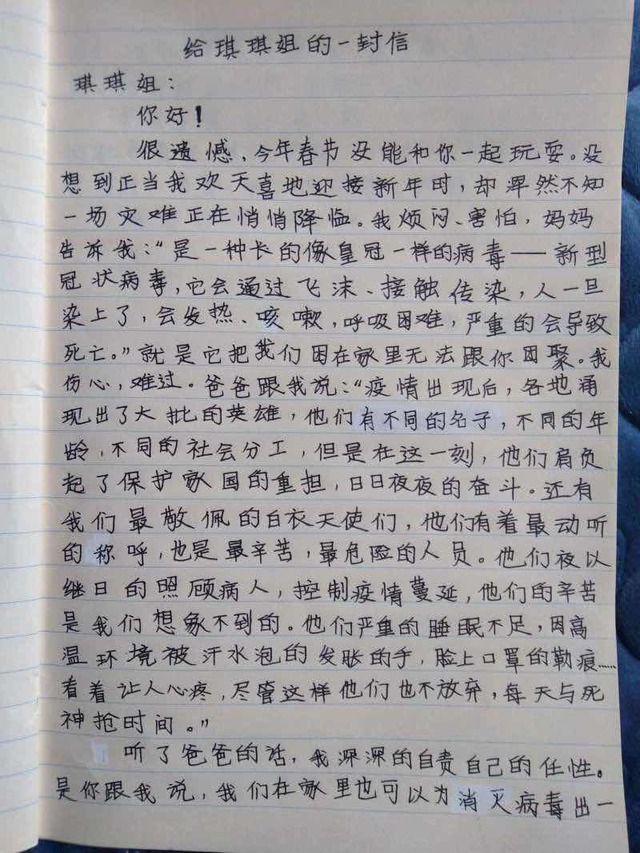 给琪琪姐的一封信
琪琪姐：
你好！
很遗憾，今年春节没能和你一起玩耍。没
想到正当我欢天喜地迎接新年时，却浑然不知
一场灾难正在悄悄降临。我烦闷、害怕，妈妈
告诉我：“是一种长的像皇冠一样的病毒——新型
冠状病毒，它会通过飞沫、接触传染，人一旦
染上了，会发热、咳嗽，呼吸困难，严重的会导致
死亡。”就是它把我们困在家里无法跟你团聚。我
伤心，难过。爸爸跟我说：“疫情出现后，各地涌
现出了大批的英雄，他们有不同的名子，不同的年
龄，不同的社会分工，但是在这一刻，他们肩负
起了保护家国的重担，日日夜夜的奋斗。还有
我们最敬佩的白衣天使们，他们有着最动听
的称呼，也是最辛苦，最危险的人员。他们夜以
继日的照顾病人，控制疫情蔓延，他们的辛苦
是我们想象不到的。他们严重的睡眠不足，因高
温环境被汗水泡的发胀的手，脸上口罩的勒痕……
看着让人心疼，尽管这样他们也不放弃，每天与死
神抢时间。”
听了爸爸的话，我深深的自责自己的任性。
是你跟我说，我们在家里也可以为消灭病毒出一